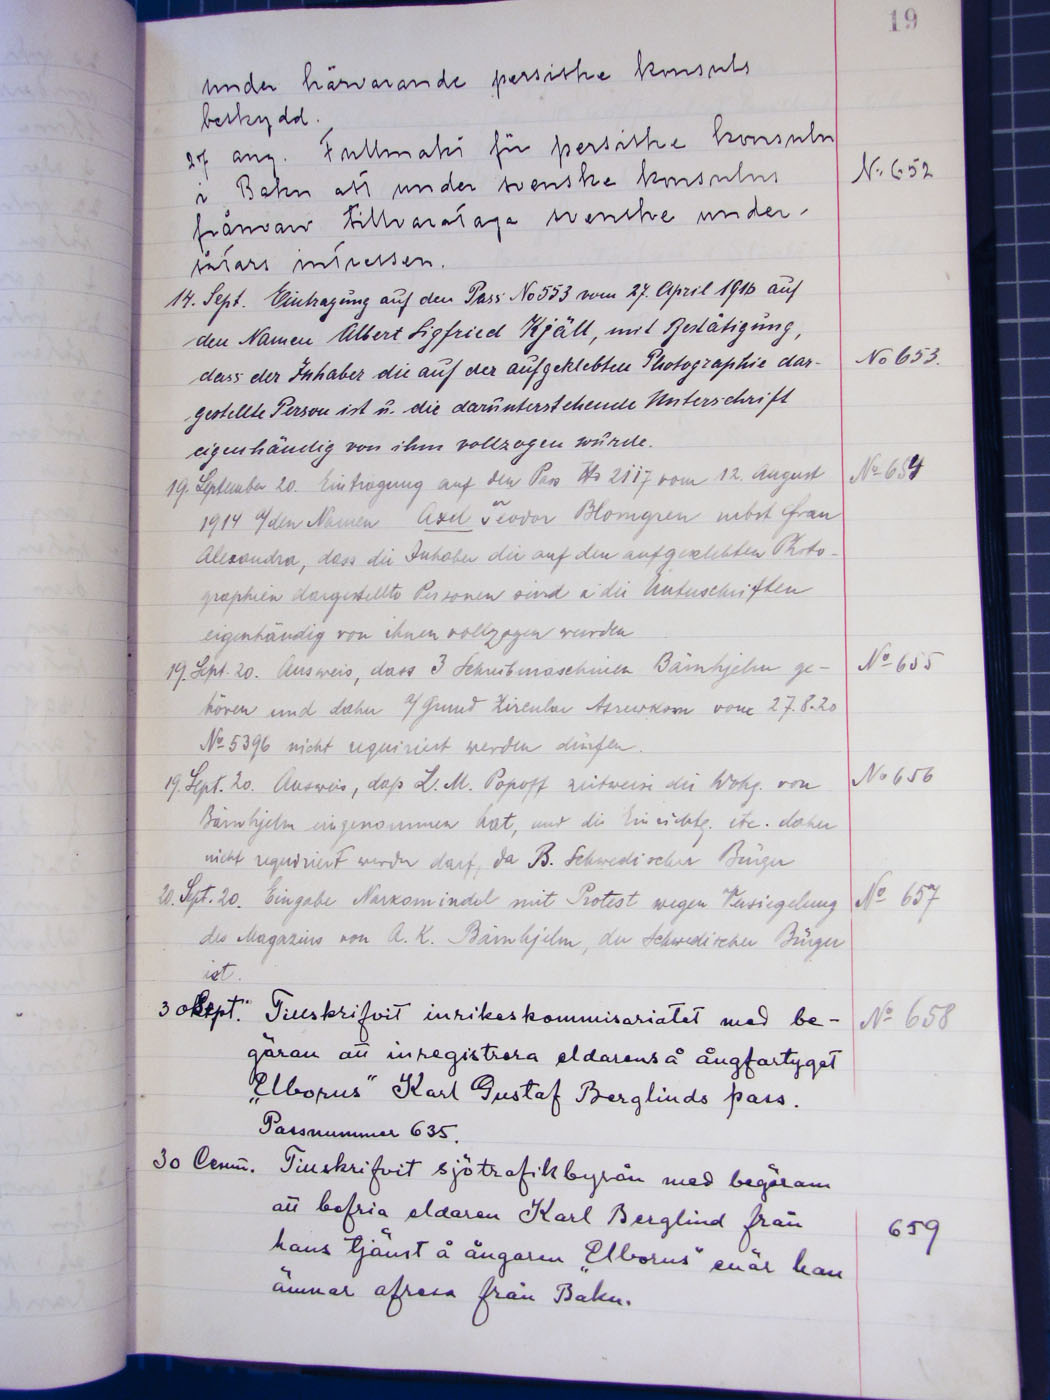 19
under härvarande persiske konsuls
beskydd.
27 aug. Fullmakt för persiske konsuln
i Baku att under svenske konsulns
frånvaro tillvarataga svenske under-
såtars intressen.
No 652
14. Sept. Eintragung auf den Pass No 553 vom 27. April 1916 auf
den Namen Albert Sigfried Kjäll, mit Bestätigung,
dass der Inhaber die auf der aufgeklebten Photographie dar-
No 653.
gestellte Person ist u. die darunterstehende Unterschrift
eigenhändig von ihm vollzogen wurde.
19. September 20. Eintragung auf den Pass No 2117 vom 12. August
No 654
1914 a/den Namen Axel Teodor Blomgren nebst frau
Alexandra, dass die Inhaber die auf den aufgeklebten Photo-
graphien dargestellte Personen sind u die Unterschriften
eigenhändig von ihnen vollzogen wurden
19. Sept. 20. Ausweis, dass 3 Schreibmaschinen Bärnhjelm ge-
No 655
hören und daher a/Grund Zircular Asrewkom vom 27.8.20
No 5396 nicht requiriert werden dürfen.
19. Sept. 20. Ausweis, daß L. M. Popoff zeitweise die Wohg. von
No 656
Bärnhjelm eingenommen hat, und die Einrichtg. etc. daher
nicht requiriert werden darf, da B. Schwedischer Bürger
20. Sept. 20. Eingabe Narkomindel mit Protest wegen Versiegelung
No 657
des Magazins von A. K. Bärnhjelm, der Schwedischer Bürger
ist.
30 Sept. Tillskrifvit inrikeskommisariatet med be-
No 658
gäran att inregistrera eldarens å ångfartyget
„Elborus" Karl Gustaf Berglinds pass.
Passnummer 635.
30 Tillskrifvit sjötrafikbyrån med begäram
att befria eldaren Karl Berglind från
659
hans tjänst å ångaren „Elborus" enär han
ämnar afresa från Baku.